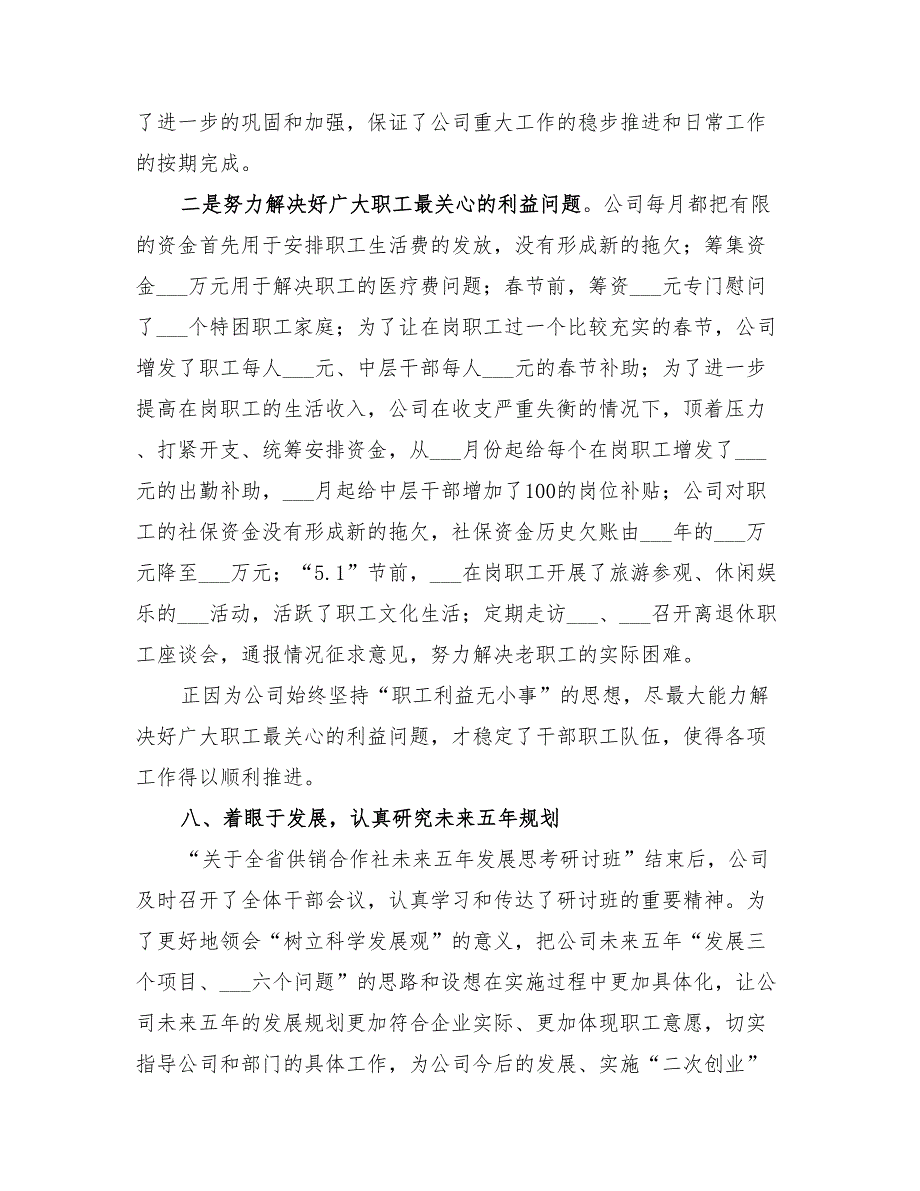 了进一步的巩固和加强，保证了公司重大工作的稳步推进和日常工作
的按期完成。
二是努力解决好广大职工最关心的利益问题。公司每月都把有限
的资金首先用于安排职工生活费的发放，没有形成新的拖欠；筹集资
金___万元用于解决职工的医疗费问题；春节前，筹资___元专门慰问
了___个特困职工家庭；为了让在岗职工过一个比较充实的春节，公司
增发了职工每人___元、中层干部每人___元的春节补助；为了进一步
提高在岗职工的生活收入，公司在收支严重失衡的情况下，顶着压力
、打紧开支、统筹安排资金，从___月份起给每个在岗职工增发了___
元的出勤补助，___月起给中层干部增加了100的岗位补贴；公司对职
工的社保资金没有形成新的拖欠，社保资金历史欠账由___年的___万
元降至___万元；“5.1”节前，___在岗职工开展了旅游参观、休闲娱
乐的___活动，活跃了职工文化生活；定期走访___、___召开离退休职
工座谈会，通报情况征求意见，努力解决老职工的实际困难。
正因为公司始终坚持“职工利益无小事”的思想，尽最大能力解
决好广大职工最关心的利益问题，才稳定了干部职工队伍，使得各项
工作得以顺利推进。
八、着眼于发展，认真研究未来五年规划
“关于全省供销合作社未来五年发展思考研讨班”结束后，公司
及时召开了全体干部会议，认真学习和传达了研讨班的重要精神。为
了更好地领会“树立科学发展观”的意义，把公司未来五年“发展三
个项目、___六个问题”的思路和设想在实施过程中更加具体化，让公
司未来五年的发展规划更加符合企业实际、更加体现职工意愿，切实
指导公司和部门的具体工作，为公司今后的发展、实施“二次创业”